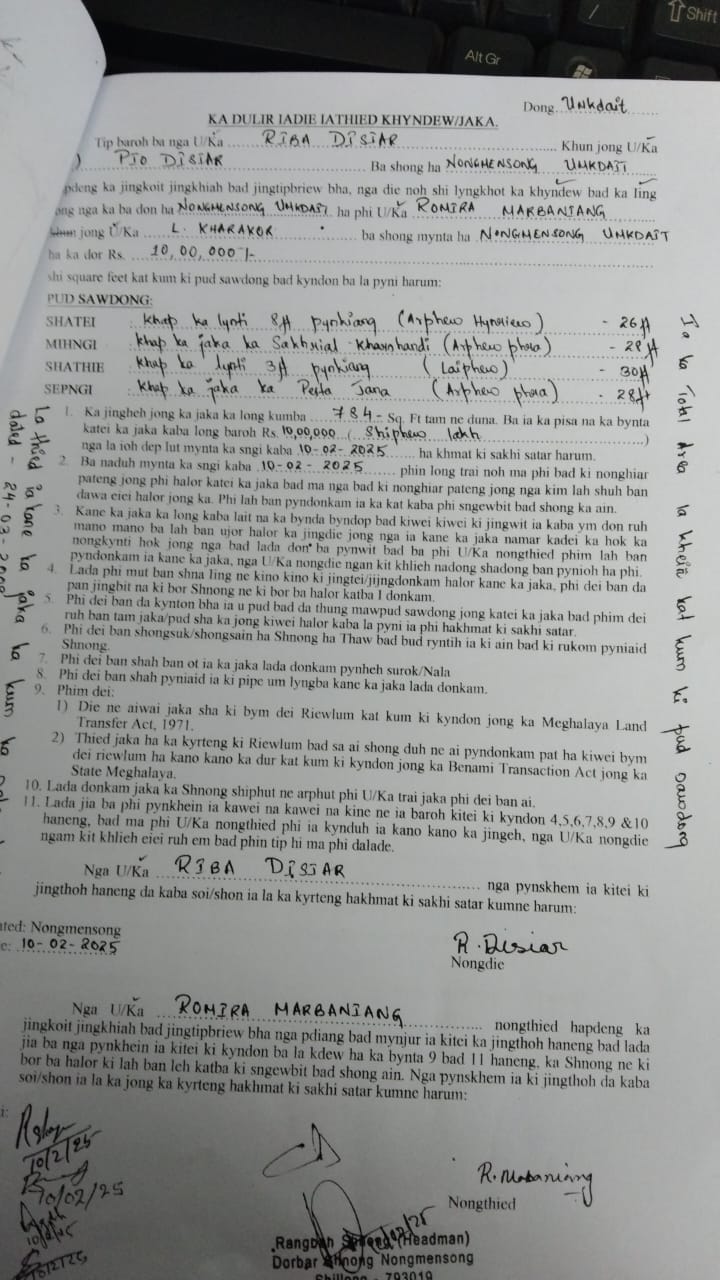 Dong. Umkdait
KA DULIR IADIE IATHIED KHYNDEW/JAKA.
Tip baroh ba nga U/Ka RIBA DISIAR Khun jong U/Ka
) PIO DISIAR Ba shong ha NONGMENSONG UMKDAIT
pdeng ka jingkoit jingkhiah bad jingtipbriew bha, nga die noh shi lyngkhot ka khyndew bad ka Iing
ong nga ka ba don ha NONGMENSONG UMKDAIT ha phi U/Ka ROMIRA MARBANIANG
jong U/Ka L. KHARAKOR ba shong mynta ha NONGMENSONG UMKDAIT
ha ka dor Rs. 10,00,000/-
shi square feet kat kum ki pud sawdong bad kyndon ba la pyni harum:
PUD SAWDONG:
SHATEI Khap ka lynti 8ft pynkiang (Arphew Hynriew) - 26ft
MIHNGI Khap ka jaka ka Sakhnial Kharnhandi (Arphew phra) - 28ft
SHATHIE Khap ka lynti 3ft pynkiang (Laiphew) - 30ft
SEPNGI Khap ka jaka ka Perta Jana (Arphew phra) - 28ft
1. Ka jingheh jong ka jaka ka long kumba 784 - Sq. Ft tam ne duna. Ba ia ka pisa na ka bynta
katei ka jaka kaba long baroh Rs. 10,00,000 (Shiphew lakh )
nga la ioh dep lut mynta ka sngi kaba 10-02-2025 ha khmat ki sakhi satar harum.
2. Ba naduh mynta ka sngi kaba 10-02-2025 phin long trai noh ma phi bad ki nonghiar
pateng jong phi halor katei ka jaka bad ma nga bad ki nonghiar pateng jong nga kim lah shuh ban
dawa eiei halor jong ka. Phi lah ban pyndonkam ia ka kat kaba phi sngewbit bad shong ka ain.
3. Kane ka jaka ka long kaba lait na ka bynda byndop bad kiwei kiwei ki jingwit ia kaba ym don ruh
mano mano ba lah ban ujor halor ka jingdie jong nga ia kane ka jaka namar kadei ka hok ka
nongkynti hok jong nga bad lada don ba pynwit bad ba phi U/Ka nongthied phim lah ban
pyndonkam ia kane ka jaka, nga U/Ka nongdie ngan kit khlieh nadong shadong ban pynioh ha phi.
4. Lada phi mut ban shna Iing ne kino kino ki jingtei/jijngdonkam halor kane ka jaka, phi dei ban da
pan jingbit na ki bor Shnong ne ki bor ba halor katba I donkam.
5. Phi dei ban da kynton bha ia u pud bad da thung mawpud sawdong jong katei ka jaka bad phim dei
ruh ban tam jaka/pud sha ka jong kiwei halor kaba la pyni ia phi hakhmat ki sakhi satar.
6. Phi dei ban shongsuk/shongsain ha Shnong ha Thaw bad bud ryntih ia ki ain bad ki rukom pyniaid
Shnong.
7. Phi dei ban shah ban ot ia ka jaka lada donkam pynheh surok/Nala
8. Phi dei ban shah pyniaid ia ki pipe um lyngba kane ka jaka lada donkam.
9. Phim dei:
1) Die ne aiwai jaka sha ki bym dei Riewlum kat kum ki kyndon jong ka Meghalaya Land
Transfer Act, 1971.
2) Thied jaka ha ka kyrteng ki Riewlum bad sa ai shong duh ne ai pyndonkam pat ha kiwei bym
dei riewlum ha kano kano ka dur kat kum ki kyndon jong ka Benami Transaction Act jong ka
State Meghalaya.
10. Lada donkam jaka ka Shnong shiphut ne arphut phi U/Ka trai jaka phi dei ban ai.
11. Lada jia ba phi pynkhein ia kawei na kawei na kine ne ia baroh kitei ki kyndon 4,5,6,7,8,9 &10
haneng, bad ma phi U/Ka nongthied phi ia kynduh ia kano kano ka jingeh, nga U/Ka nongdie
ngam kit khlieh eiei ruh em bad phin tip hi ma phi dalade.
Nga U/Ka RIBA DISIAR nga pynskhem ia kitei ki
jingthoh haneng da kaba soi/shon ia la ka kyrteng hakhmat ki sakhi satar kumne harum:
ated: Nongmensong
e: 10-02-2025
R. Disiar
Nongdie
Nga U/Ka ROMIRA MARBANIANG nongthied hapdeng ka
jingkoit jingkhiah bad jingtipbriew bha nga pdiang bad mynjur ia kitei ka jingthoh haneng bad lada
jia ba nga pynkhein ia kitei ki kyndon ba la kdew ha ka bynta 9 bad 11 haneng, ka Shnong ne ki
bor ba halor ki lah ban leh katba ki sngewbit bad shong ain. Nga pynskhem ia ki jingthoh da kaba
soi/shon ia la ka jong ka kyrteng hakhmat ki sakhi satar kumne harum:
i:
10/2/25
10/02/25
10/2/25
10/2/25
R. Mabaniang
Nongthied
10/02/25
Rangbah Shnong (Headman)
Dorbar Shnong Nongmensong
Shillong - 793019
Ia ka Total Area la kheiñ kat kum ki pud sawdong
La thied ia kane ka jaka ha kum ka
dated - 24-03-200
Alt Gr
/
Shift